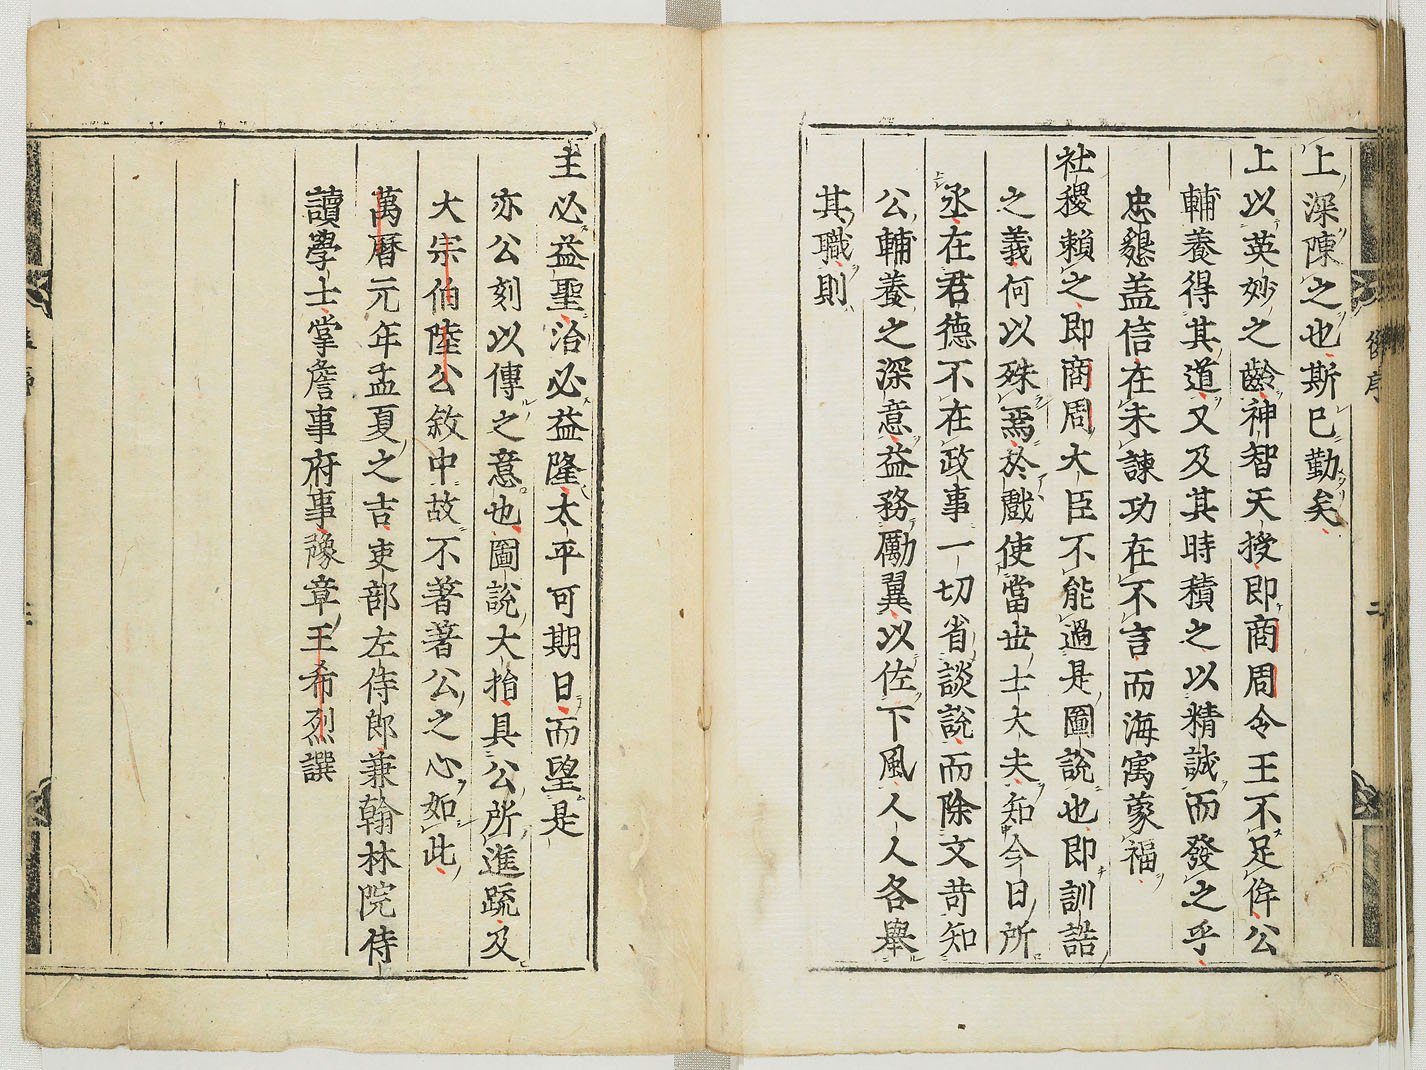 上深陳之也斯已勤矣
上以英妙之齡神智天授即商周令王不足侔公
輔養得其道又及其時積之以精誠而發之乎
忠懇盖信在未諫功在不言而海寓蒙福
社稷賴之即商周大臣不能過是圖說也即訓誥
之義何以殊焉於戲使當世士大夫知今日所
丞在君德不在政事一切省談說而除文苛知
公輔養之深意益務勵翼以佐下風人人各舉
其職則
主必益聖治必益隆太平可期日而望是
亦公刻以傳之意也圖說大指具公所進疏及
大宗伯陸公敘中故不著著公之心如此
萬曆元年孟夏之吉吏部左侍郎兼翰林院侍
讀學士掌詹事府事豫章王希烈譔